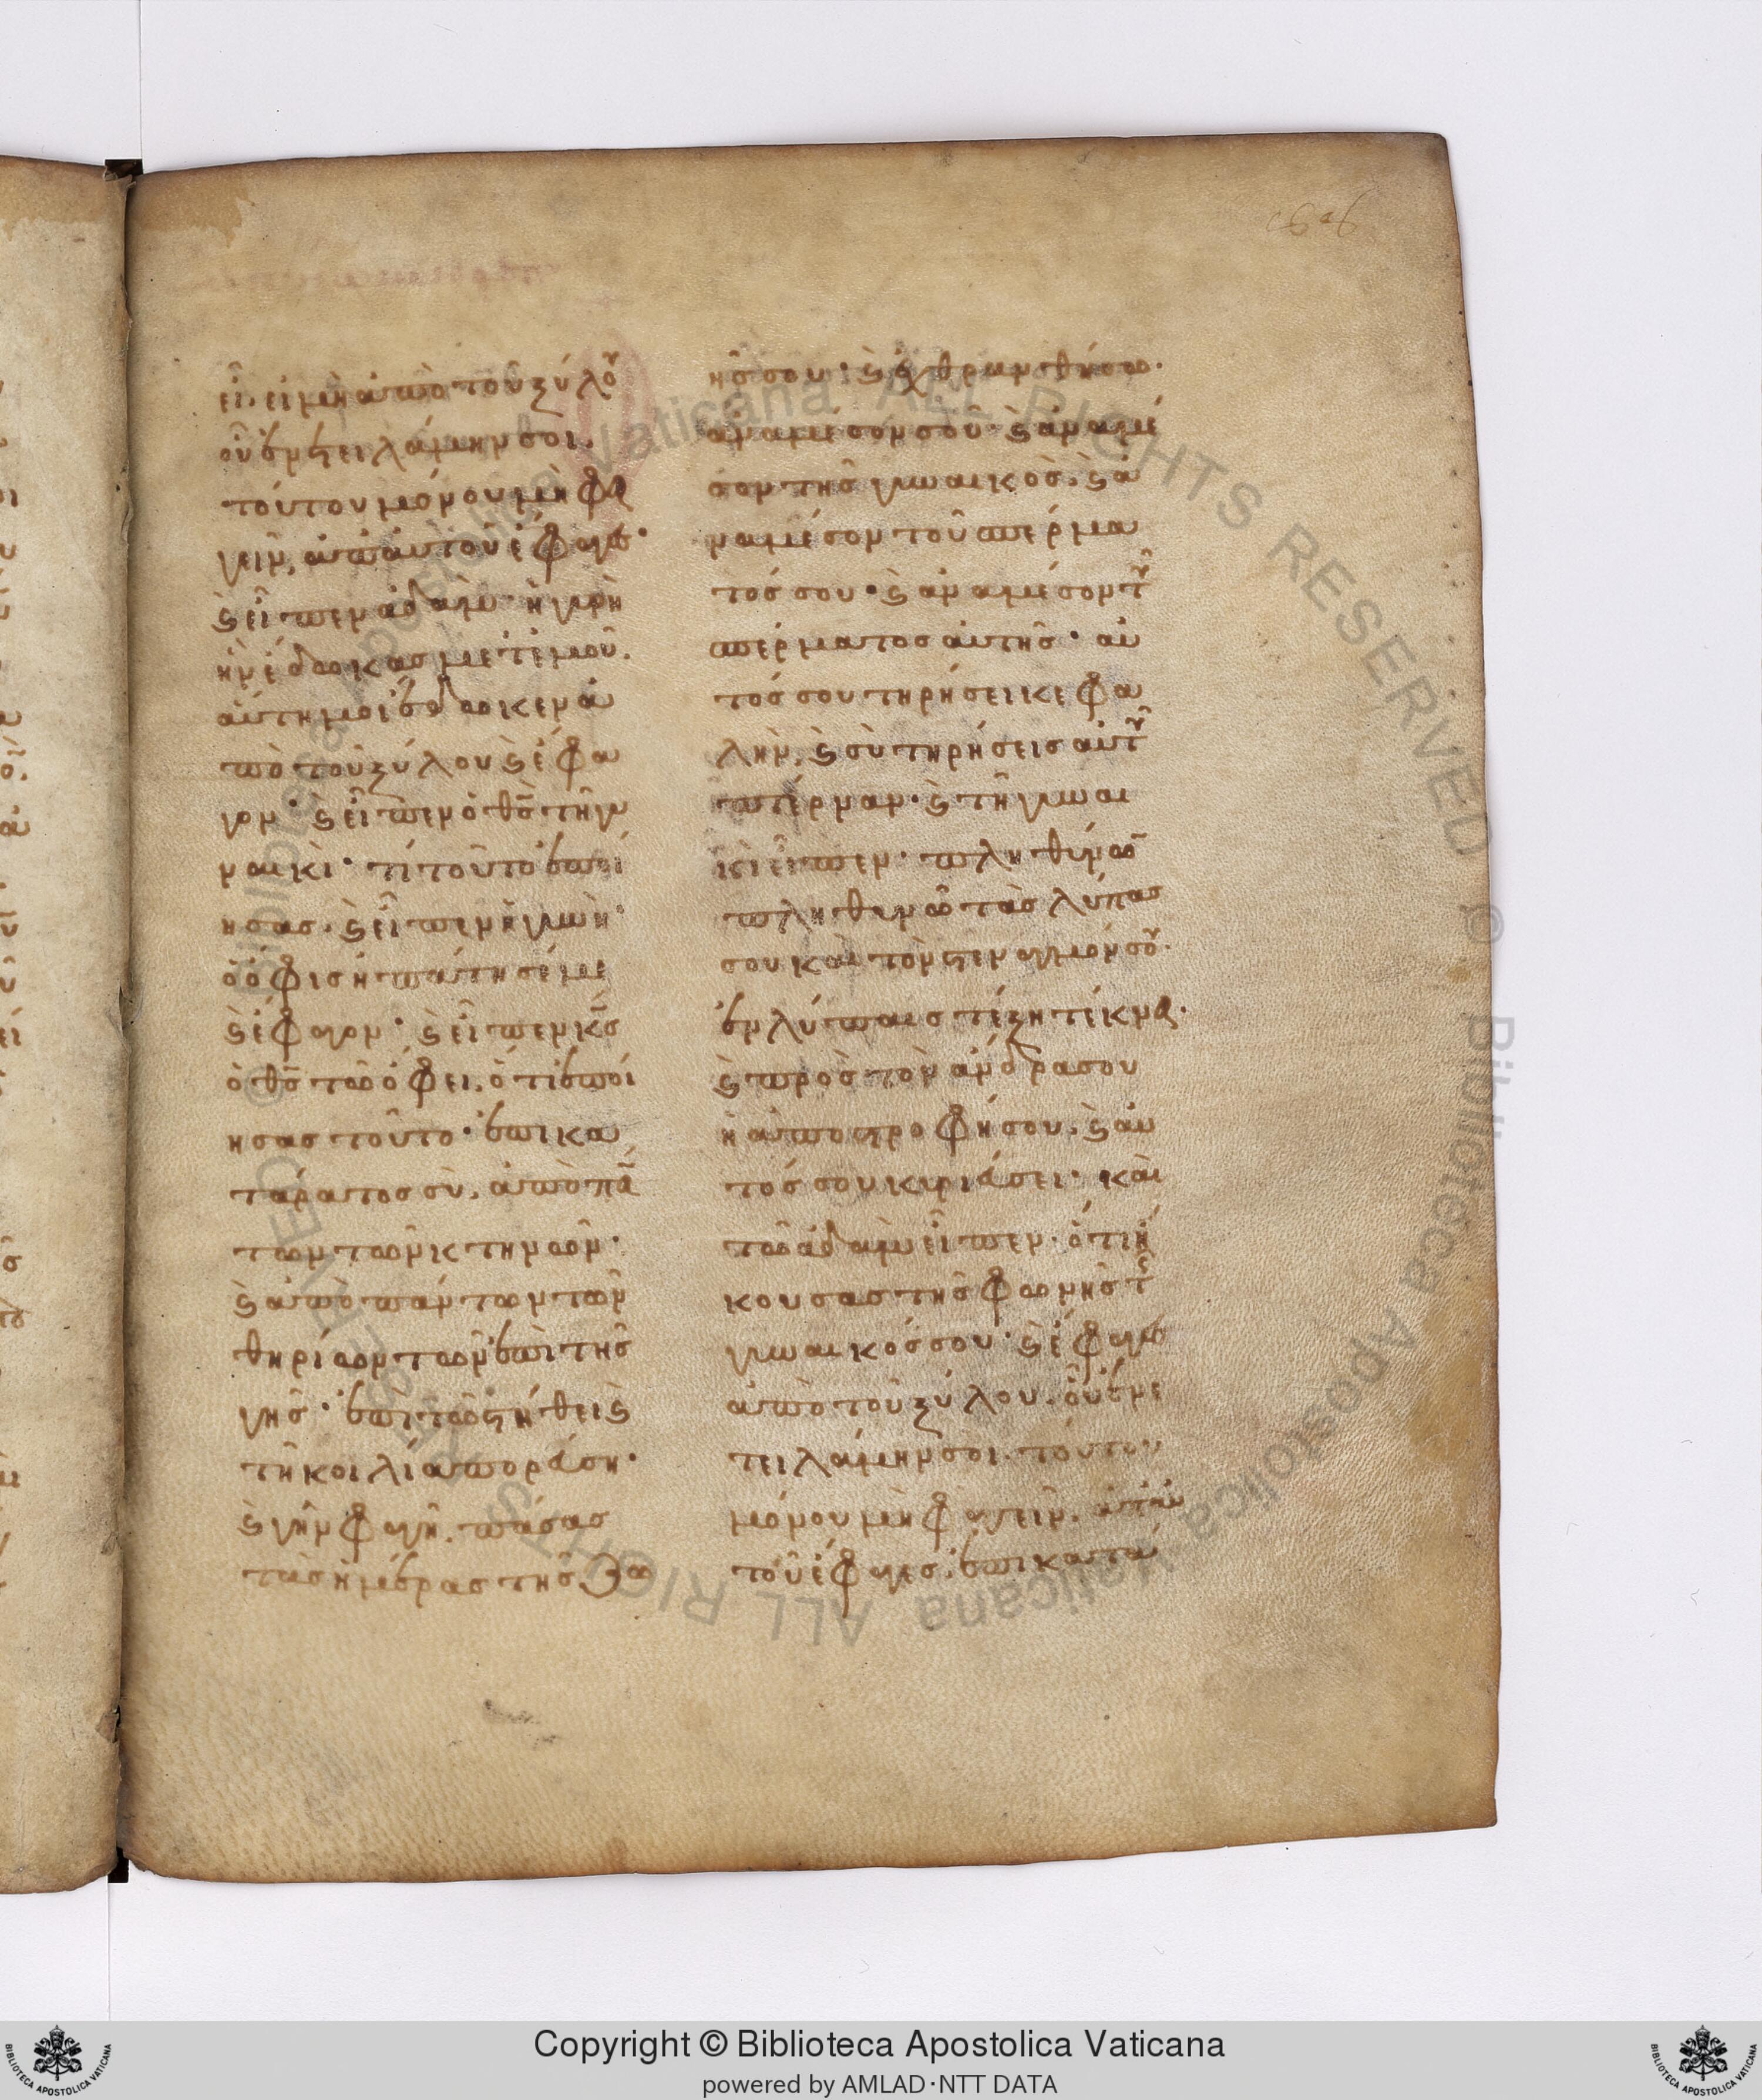 εἶ· εἰ μὴ ἀπὸ τοῦ ξύλου
οὗ ἐνετειλάμην σοι.
τούτου μόνου μὴ φα
γεῖν, ἀπ' αὐτοῦ ἔφαγες·
καὶ εἶπεν ἀδάμ· ἡ γυνὴ
ἣν ἔδωκας μετ' ἐμοῦ.
αὕτη μοι ἔδωκεν ἀ
πὸ τοῦ ξύλου καὶ ἔφα
γον· καὶ εἶπεν ὁ θς τῇ γυ
ναικὶ· τί τοῦτο ἐποί
ησας· καὶ εἶπεν ἡ γυνὴ·
ὁ ὄφις ἠπάτησέ με
καὶ ἔφαγον· καὶ εἶπεν κς
ὁ θς τῷ ὄφει· ὅτι ἐποί
ησας τοῦτο· ἐπικα
τάρατος σὺ, ἀπὸ πά
των τῶν κτηνῶν·
καὶ ἀπὸ πάντων τῶν
θηρίων τῶν ἐπὶ τῆς
γῆς· ἐπὶ τῷ στήθει καὶ
τῇ κοιλία πορεύση·
καὶ γῆν φαγῆ. πάσας
τὰς ἡμέρας τῆς ζω
ῆς σου· καὶ ἔχθραν θήσω·
ἀναμέσον σοῦ· καὶ ἀναμέ
σον τῆς γυναικὸς· καὶ ἀ
ναμέσον τοῦ σπέρμα
τός σου· καὶ ἀναμέσον τοῦ
σπέρματος αὐτῆς· αὐ
τός σου τηρήσει κεφα
λὴν, καὶ σὺ τηρήσεις αὐτοῦ
πτέρναν· καὶ τῇ γυναι
κὶ εἶπεν· πληθύνων
πληθυνῶ τὰς λύπας
σου καὶ τὸν στεναγμόν σου·
ἐν λύπαις τέξη τέκνα·
καὶ πρὸς τὸν ἄνδρα σου
ἡ ἀποστροφή σου· καὶ αὐ
τός σου κυριεύσει· καὶ
τῷ ἀδὰμ εἶπεν· ὅτι ἤ
κουσας τῆς φωνῆς τῆς
γυναικός σου· καὶ ἔφαγες
ἀπὸ τοῦ ξύλου· οὗ ἐνε
τειλάμην σοι· τούτου
μόνου μὴ φαγεῖν· ἀπ' αὐ
τοῦ ἔφαγες· ἐπικατά